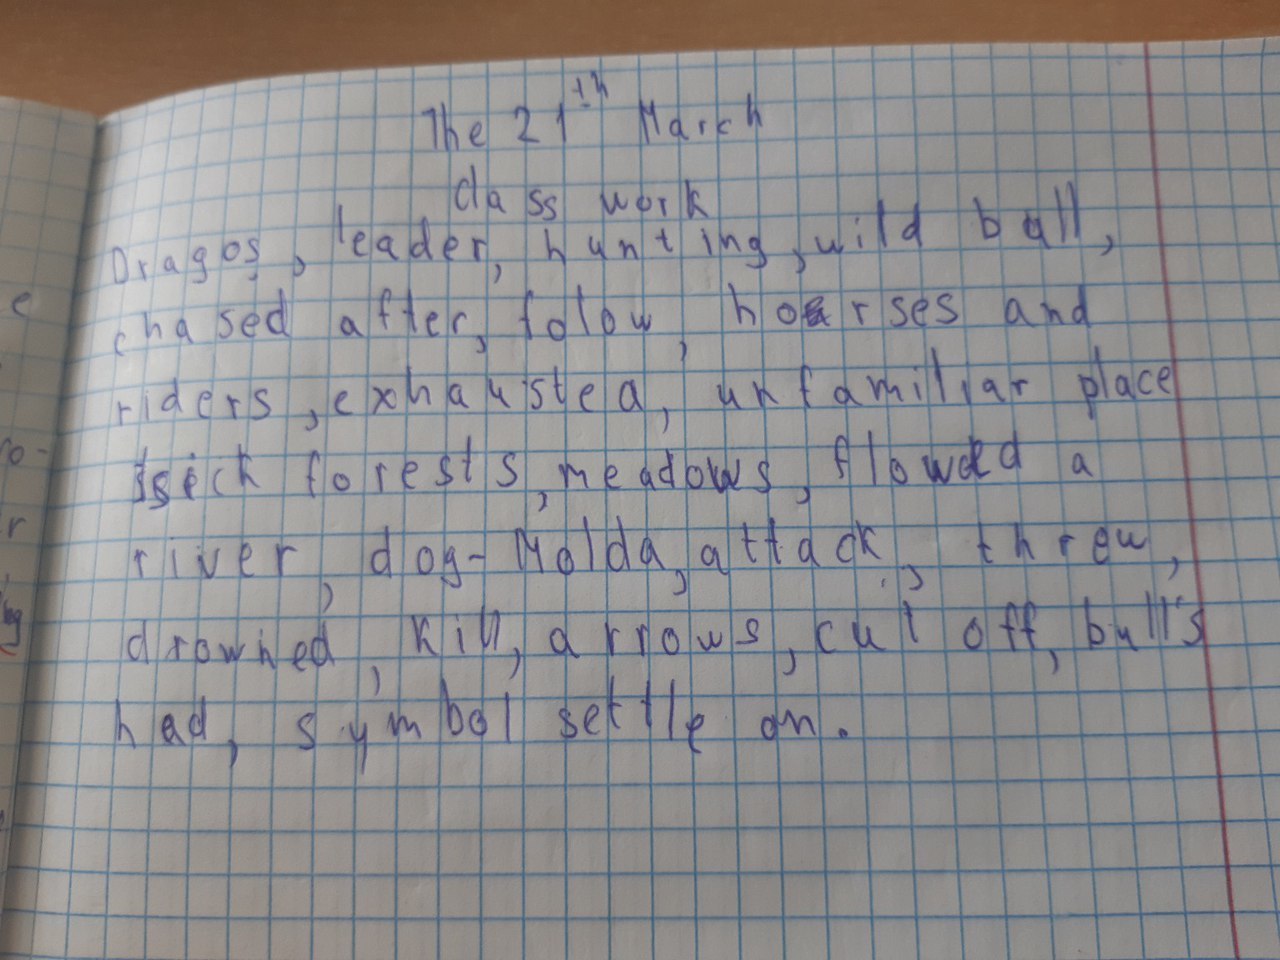 The 21th March
Class work
Dragoș, leader, hunting, wild ball,
chased after, folow, horses and
riders, exhausted, unfamiliar place
sick forests, meadows, flowed a
river, dog-Molda, attack, threw,
drowned, kill, arrows, cut off, bull's
had, symbol settle on.